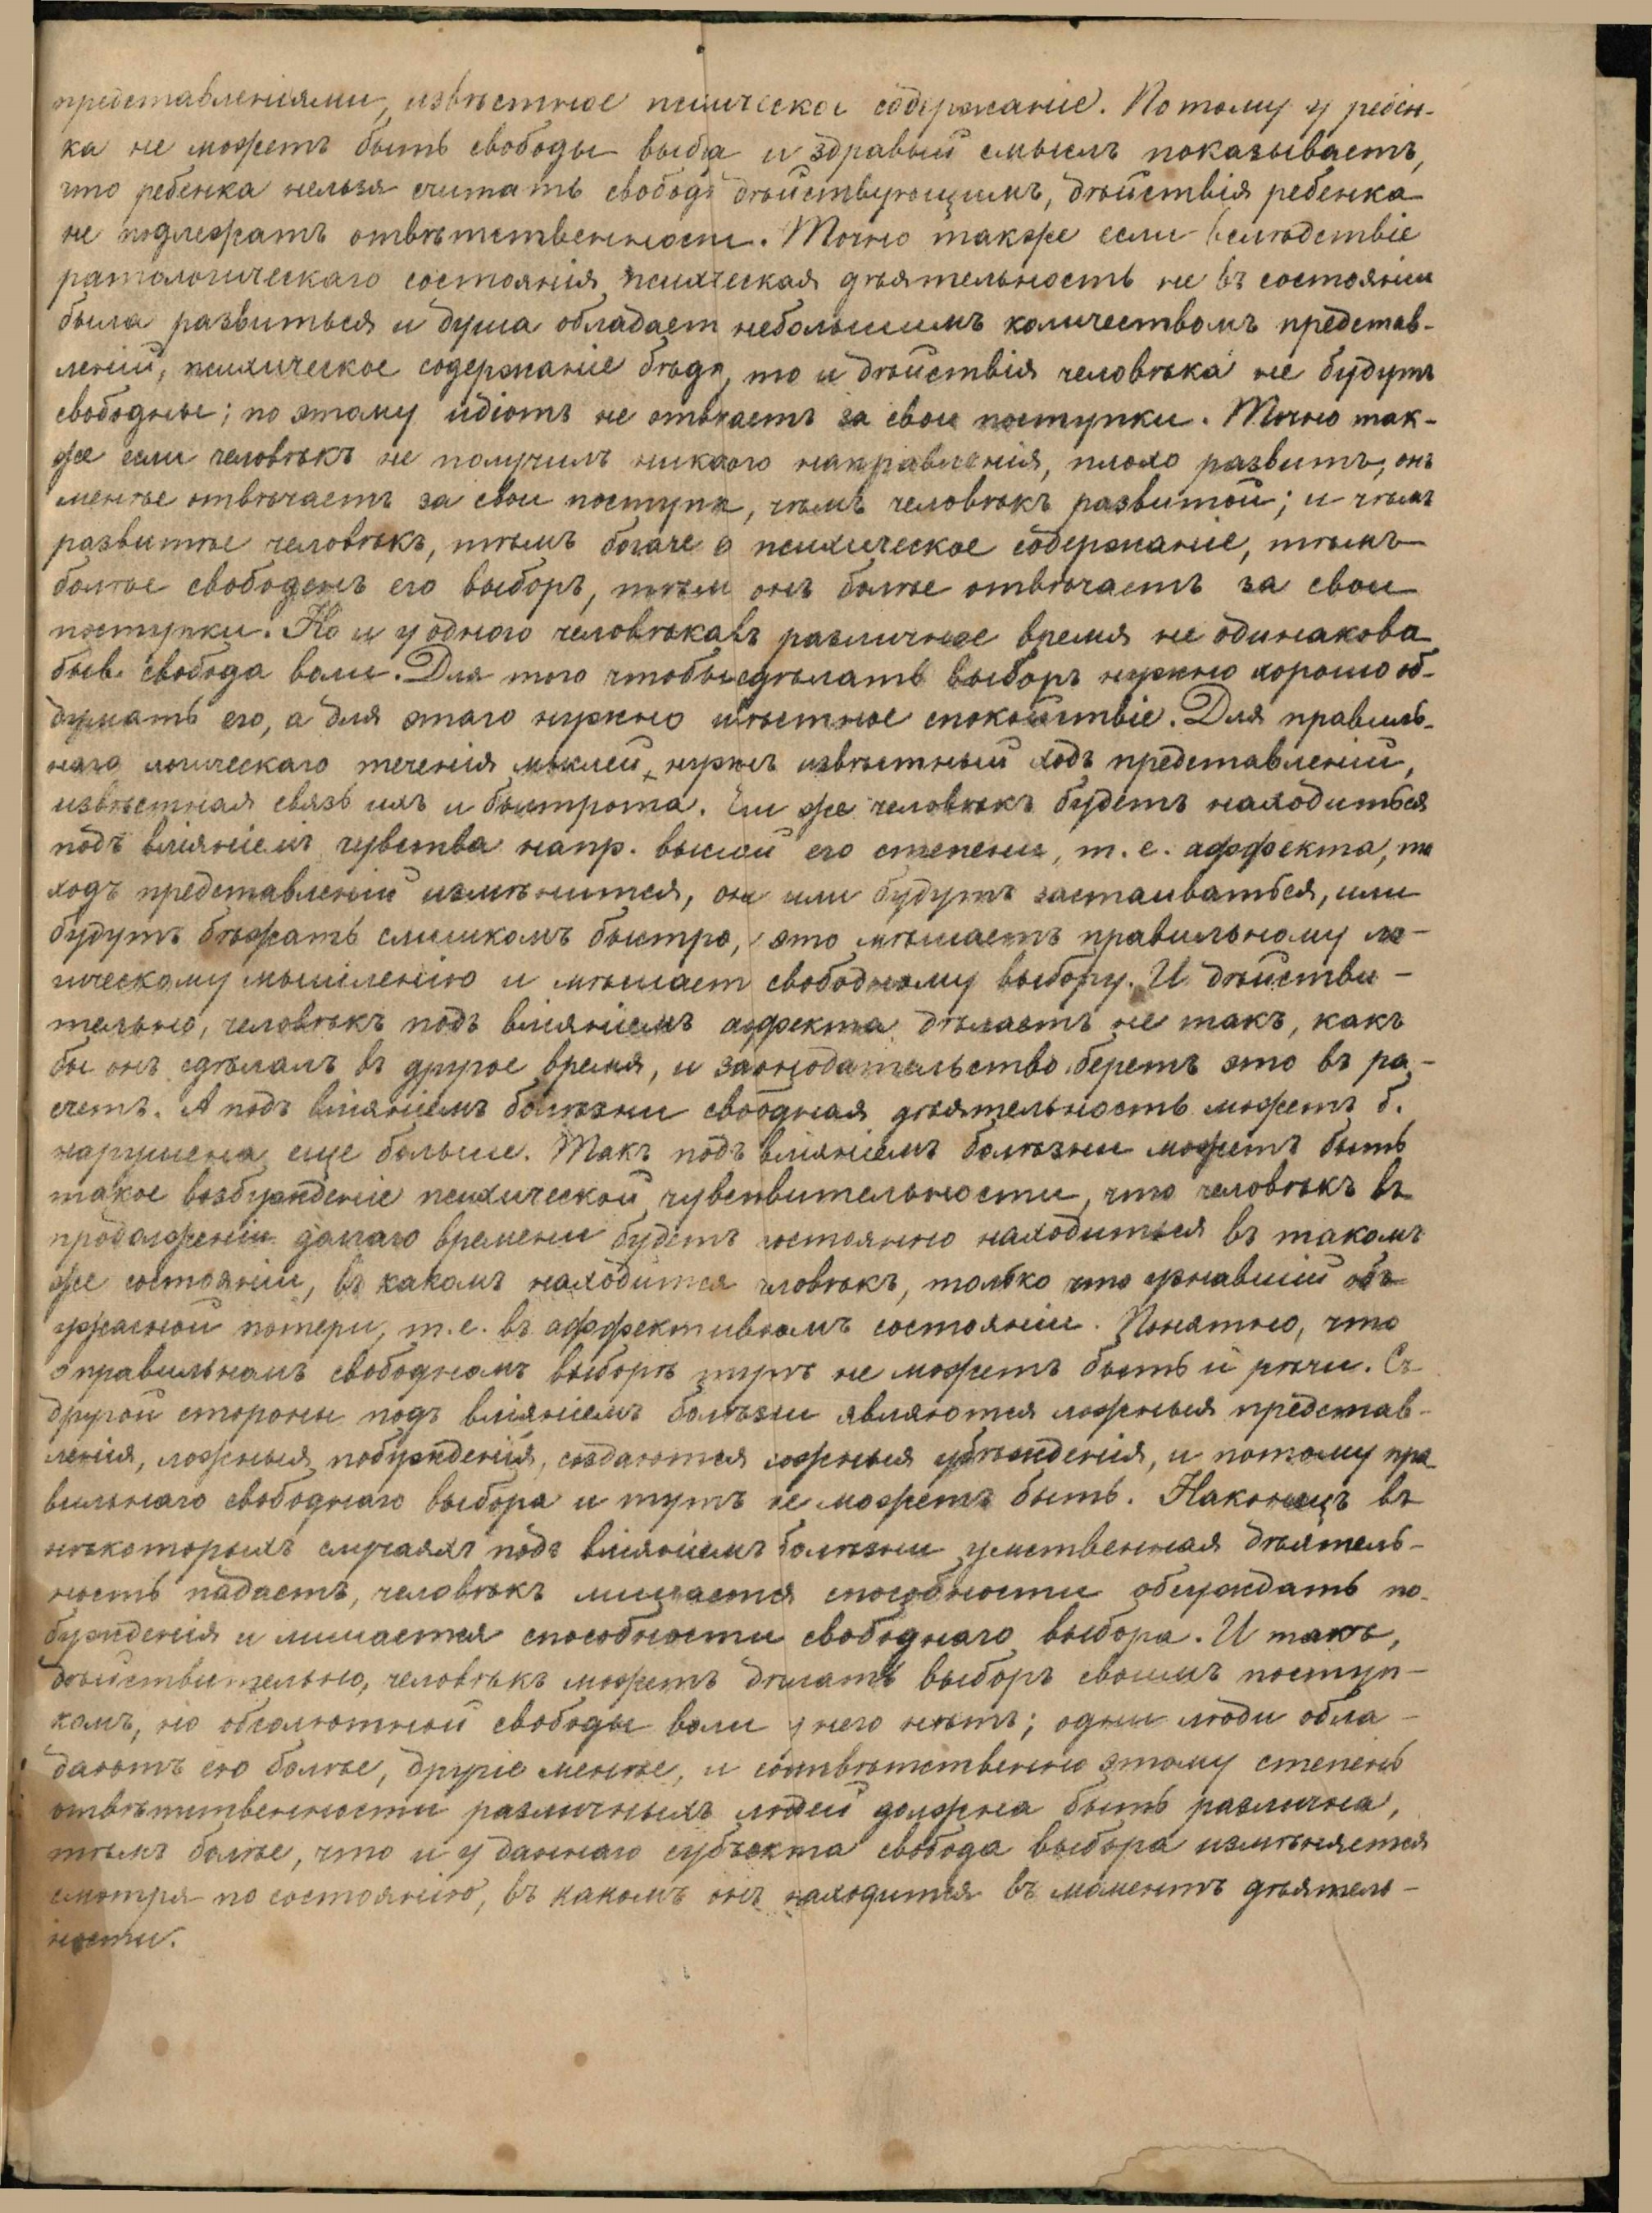 представленіями, извѣстное психическое содержаніе. Потому у ребен-
ка не можетъ быть свободы выбра и здравый смыслъ показываетъ,
что ребенка нельзя считать свобод дѣйствующимъ, дѣйствія ребенка
не подлежатъ отвѣтственности. Точно также если вслѣдствіе
патологическаго состоянія психическая дѣятельность не въ состояніи
была развиться и душа обладает небольшимъ количествомъ представ-
леній, психическое содержаніе бѣдн, то и дѣйствія человѣка не будутъ
свободны; по этому идіотъ не отвѣчаетъ за свои поступки. Точно так-
же если человѣкъ не получилъ никакого направленія, плохо развитъ, онъ
менѣе отвѣчаетъ за свои поступки, чѣмъ человѣкъ развитой; и чѣмъ
развитѣе человѣкъ, тѣмъ богаче его психическое содержаніе, тѣмъ
болѣе свободенъ его выборъ, тѣмъ онъ болѣе отвѣчаетъ за свои
поступки. Но и у одного человѣка въ различное время не одинакова
быв. свобода воли. Для того чтобы сдѣлать выборъ нужно хорошо об-
думать его, а для этаго нужно извѣстное спокойствіе. Для правиль-
наго логическаго теченія мыслей, нуженъ извѣстный ходъ представленій,
извѣстная связь ихъ и быстрота. Если же человѣкъ будетъ находиться
подъ вліяніемъ чувства напр. высшей его степени, т.е. аффекта, то
ходъ представленій измѣнится, они или будутъ застаиваться, или
будутъ бѣжать слишкомъ быстро, это мѣшаетъ правильному ло-
гическому мышленію и мѣшает свободному выбору. И дѣйстви-
тельно, человѣкъ подъ вліяніемъ аффекта дѣлаетъ не такъ, какъ
бы онъ сдѣлалъ въ другое время, и законодательство беретъ это въ ра-
счетъ. А подъ вліяніемъ болѣзни свободная дѣятельность можетъ б.
нарушена еще больше. Такъ подъ вліяніемъ болѣзни можетъ быть
такое возбужденіе психической чувствительности, что человѣкъ въ
продолженіи долгаго времени будетъ постоянно находиться въ такомъ
же состояніи, въ какомъ находится человѣкъ, только что узнавшій объ
ужасной потери, т.е. въ аффективномъ состояніи. Понятно, что
о правильномъ свободномъ выборѣ тутъ не можетъ быть и рѣчи. Съ
другой стороны подъ вліяніемъ болѣзни являются ложныя представ-
ленія, ложныя побужденія, создаются ложныя убѣжденія, и потому пра-
вильнаго свободнаго выбора и тутъ не можетъ быть. Наконецъ въ
нѣкоторыхъ случаяхъ подъ вліяніемъ болѣзни умственная дѣятель-
ность падаетъ, человѣкъ лишается способности обсуждать по-
бужденія и лишается способности свободнаго выбора. И такъ,
дѣйствительно, человѣкъ можетъ дѣлать выборъ своимъ поступ-
камъ, но абсолютной свободы воли у него нѣтъ; одни люди обла-
даютъ ею болѣе, другіе менѣе, и соотвѣтственно этому степень
отвѣтственности различныхъ людей должна быть различна,
тѣмъ болѣе, что и у даннаго субъекта свобода выбора измѣняется
смотря по состоянію, въ какомъ онъ находится въ моментъ дѣятель-
ности.